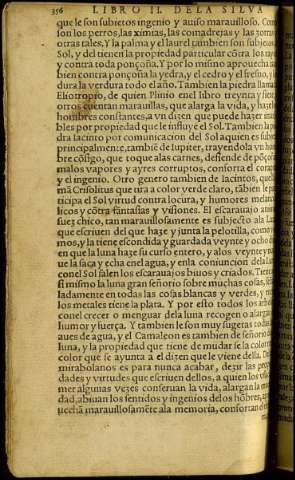 356 LIBRO II. DE LA SILVA
que le son subietos ingenio y auiso marauilloso. Com
son los perros, las ximias, las comadrejas y las zorras
otras tales. Y la palma y el laurel tambien son subjetos
Sol, y del tienen la propiedad particular cõtra los rayos
y contra toda ponçoña. Y por lo mismo aprouecha
bien contra ponçoña la yedra, y el cedro y el fresno, y
dura la verdura todo el año. Tambien la piedra llamada
Eliotropio, de quien Plinio en el libro treynta y siete
otros cuentan marauillas, que alarga la vida, y haze
hombres constantes, a vn dizen que puede hazer inuisi
bles por propiedad que le influye el Sol. Tambien la pie
dra Iacinto por comunicacion del Sol a quien es subjeto
principalmente, tambiẽ de Iupiter, trayendola vn hom
bre cõsigo, que toque alas carnes, defiende de põçoña
malos vapores y ayres corruptos, conforta el coraçon
y el ingenio. Otro genero tambien de Iacintos, que lla
mã Crisolitus que tira a color verde claro, tãbien le par
ticipa del Sol virtud contra locura, y humores melanco
licos y cõtra fantasias y visiones. El escarauajo animal
suez chico, tan marauillosamente es subjecto ala Luna
que escriuen del que haze y junta la pelotilla, como
mos, y la tiene escondida y guardada veynte y ocho dias
en que la luna haze su curso entero, y alos veynte y nue
ue la saca y echa enel agua, y enla conjuncion dela luna
conel Sol salen los escarauajos biuos y criados. Tiene
si mismo la luna gran señorio sobre muchas cosas, seña
ladamente en todas las cosas blancas y verdes, y en
los metales tiene la plata. Y por esto todos los arboles
conel crecer o menguar dela luna recogen o alargan
humor y fuerça. Y tambien le son muy sugetas todas las
aues de agua, y el Camaleon es tambien de señorio dela
luna, y la propiedad que tiene de mudarse la color
color que se ayunta a el dizen que le viene della. De
mirabolanos es para nunca acabar, dezir las pro
dades y virtudes que escriuen dellos, a quien los vsa co
mer algunas vezes conseruan la vida, alargan la mo
dad, abiuan los sentidos y ingenios delos hõbres, apro
uechã marauillosamẽte ala memoria, confortan el